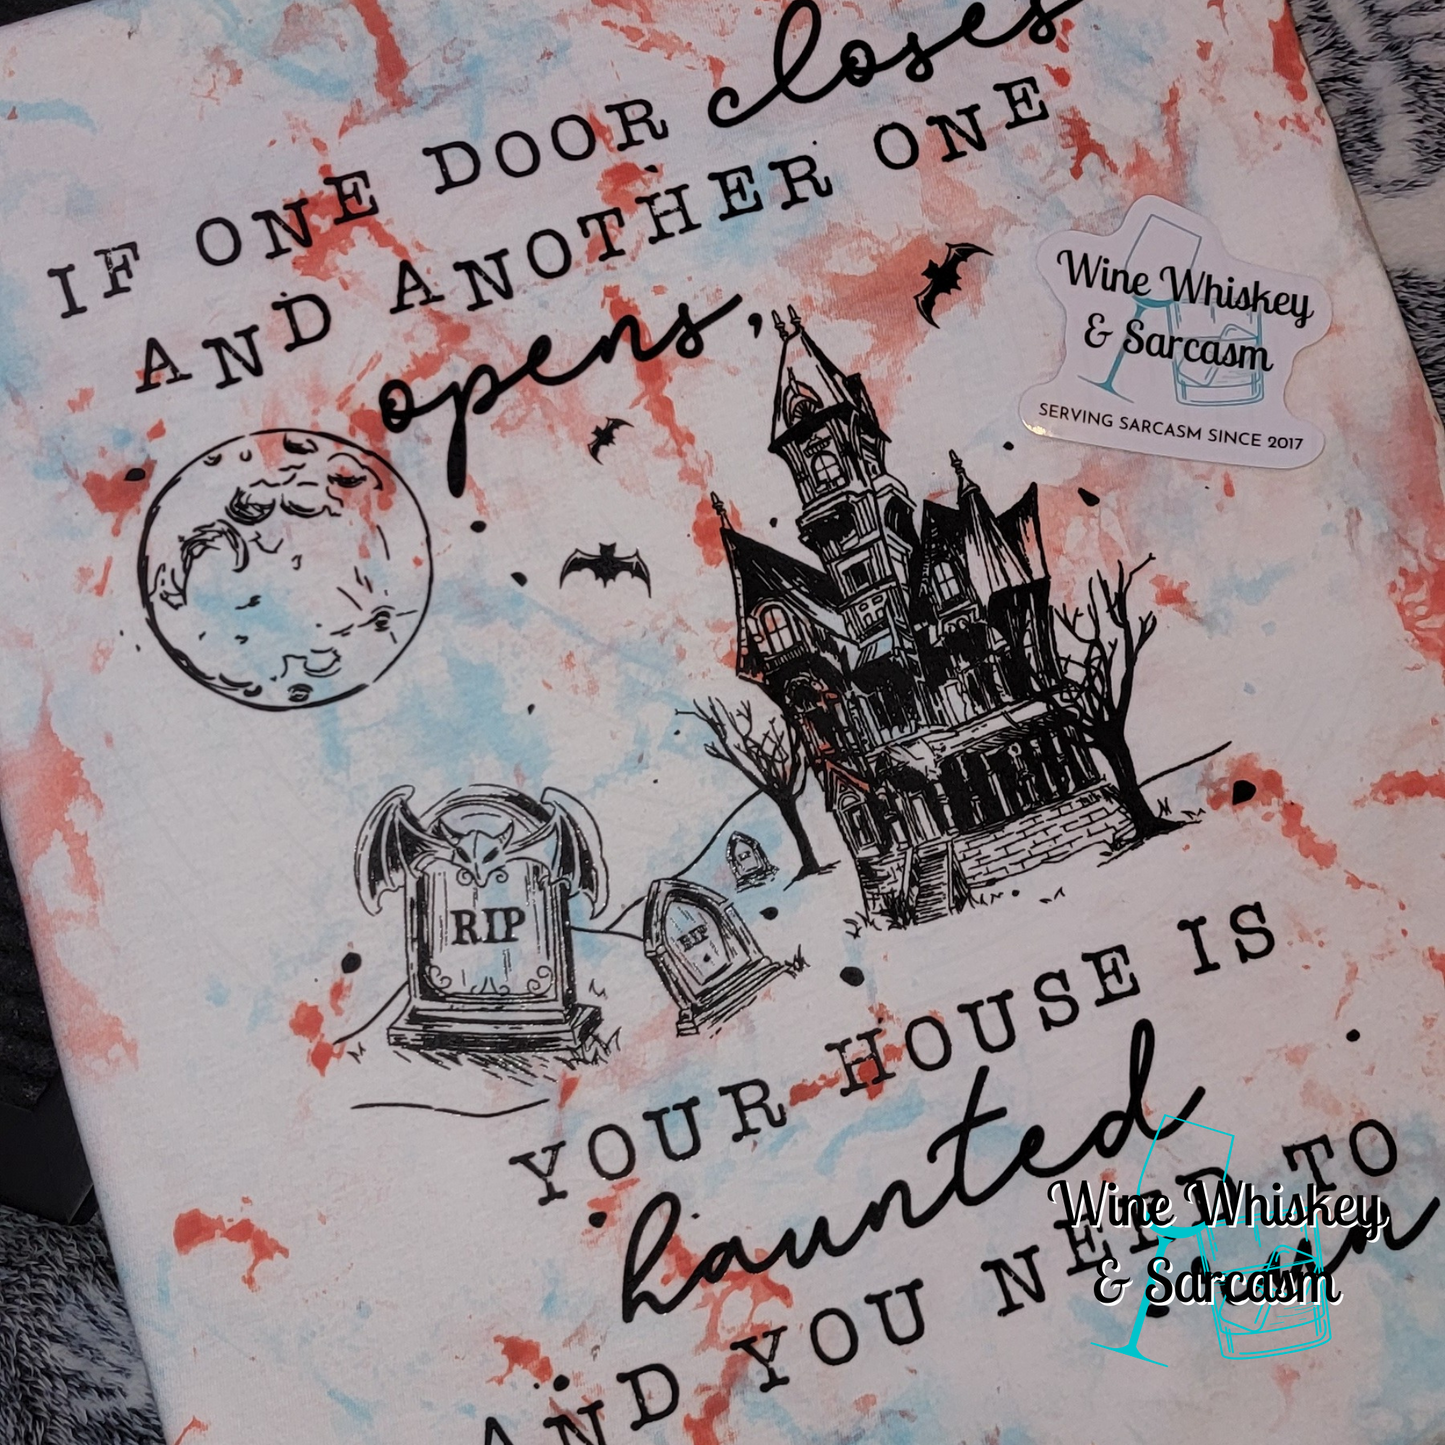 IF ONE DOOR closes
AND ANOTHER ONE
opens,
Wine Whiskey
& Sarcasm
SERVING SARCASM SINCE 2017
RIP
RIP
YOUR HOUSE IS
haunted
AND YOU NEED TO
run
Wine Whiskey
& Sarcasm